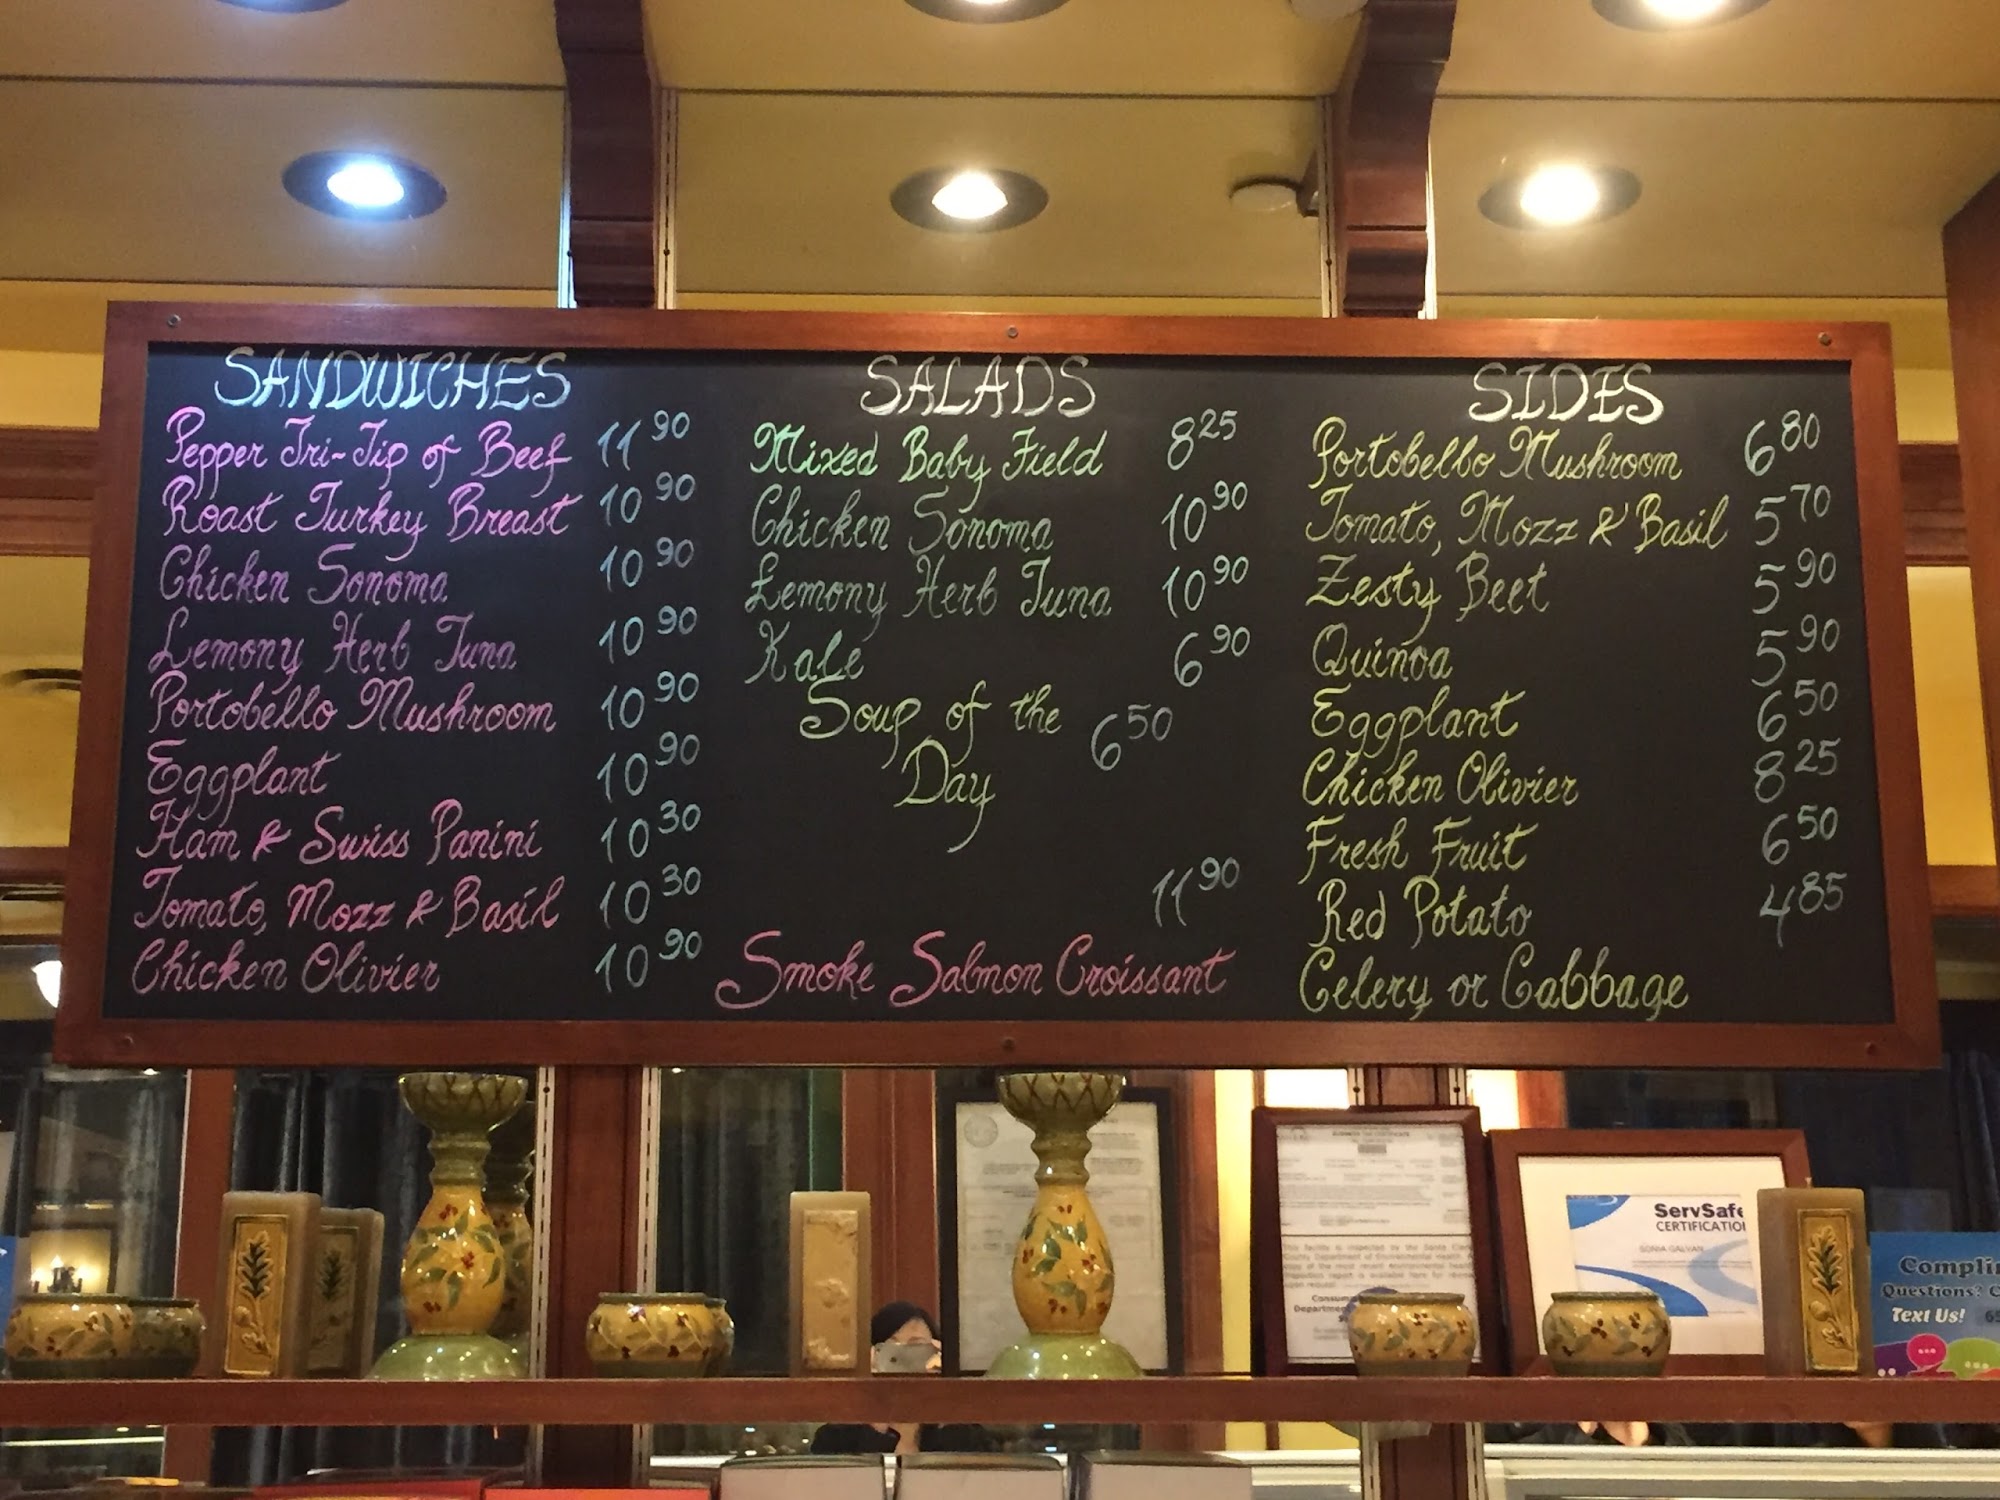 SANDWICHES
Pepper Tri-Tip of Beef 11 90
Roast Turkey Breast 10 90
Chicken Sonoma 10 90
Lemony Herb Tuna 10 90
Portobello Mushroom 10 90
Eggplant 10 90
Ham & Swiss Panini 10 30
Tomato, Mozz & Basil 10 30
Chicken Olivier 10 90
SALADS
Mixed Baby Field 8 25
Chicken Sonoma 10 90
Lemony Herb Tuna 10 90
Kale 6 90
Soup of the 6 50
Day
11 90
Smoke Salmon Croissant
SIDES
Portobello Mushroom 6 80
Tomato, Mozz & Basil 5 70
Zesty Beet 5 90
Quinoa 5 90
Eggplant 6 50
Chicken Olivier 8 25
Fresh Fruit 6 50
Red Potato 4 85
Celery or Cabbage
ServSafe
CERTIFICATIO
SONIA GALVAN
Complim
Questions? C
Text Us!